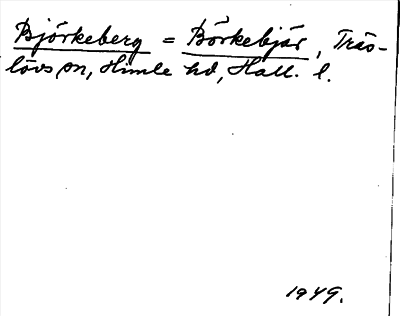 Björkeberg = Börkebjär, Träs-
lövs sn, Himle hd, Hall. l.
1949.